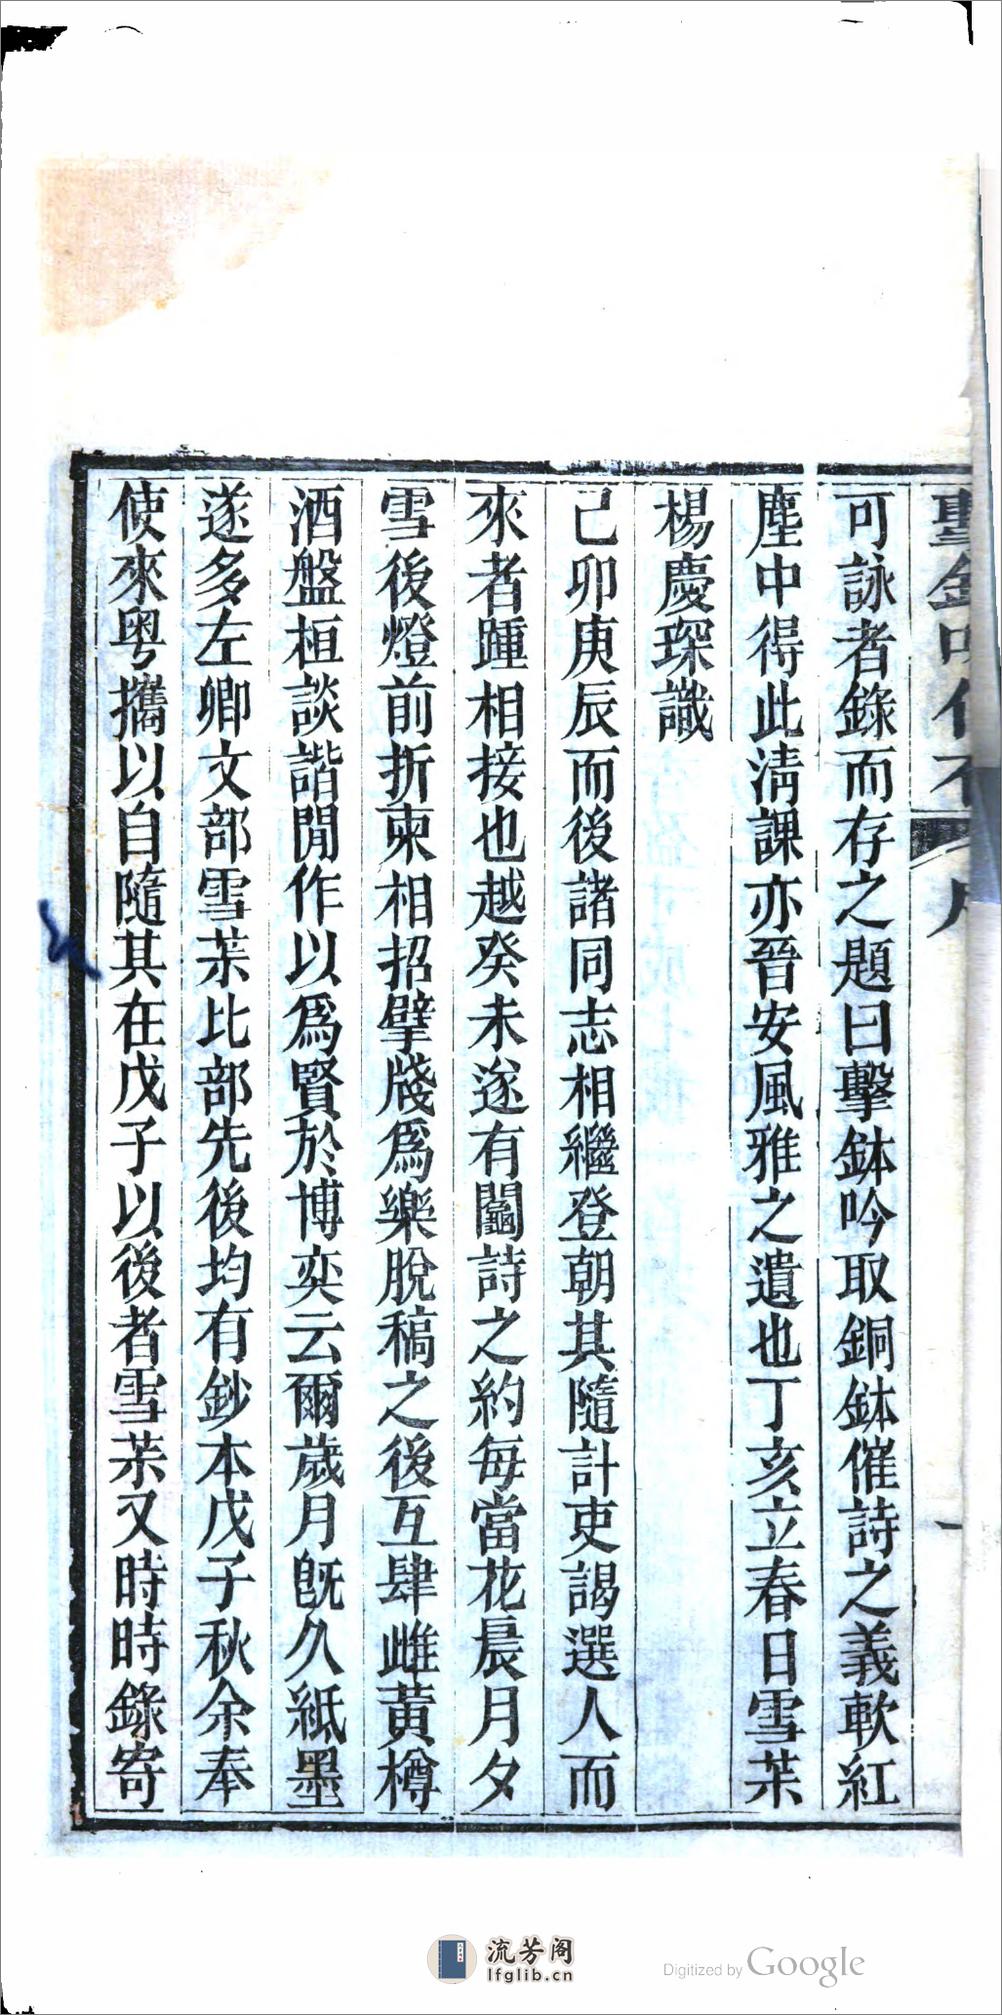 可詠者錄而存之題曰擊鉢吟取銅鉢催詩之義軟紅
塵中得此淸課亦晉安風雅之遺也丁亥立春日雪茮
楊慶琛識
己卯庚辰而後諸同志相繼登朝其隨計吏謁選人而
來者踵相接也越癸未遂有鬮詩之約每當花晨月夕
雪後燈前折柬相招擘牋爲樂脫稿之後互肆雌黃樽
酒盤桓談諧閒作以爲賢於博奕云爾歲月旣久紙墨
遂多左卿文部雪茮比部先後均有鈔本戊子秋余奉
使來粵攜以自隨其在戊子以後者雪茮又時時錄寄
流芳阁
lfglib.cn
Digitized by Google